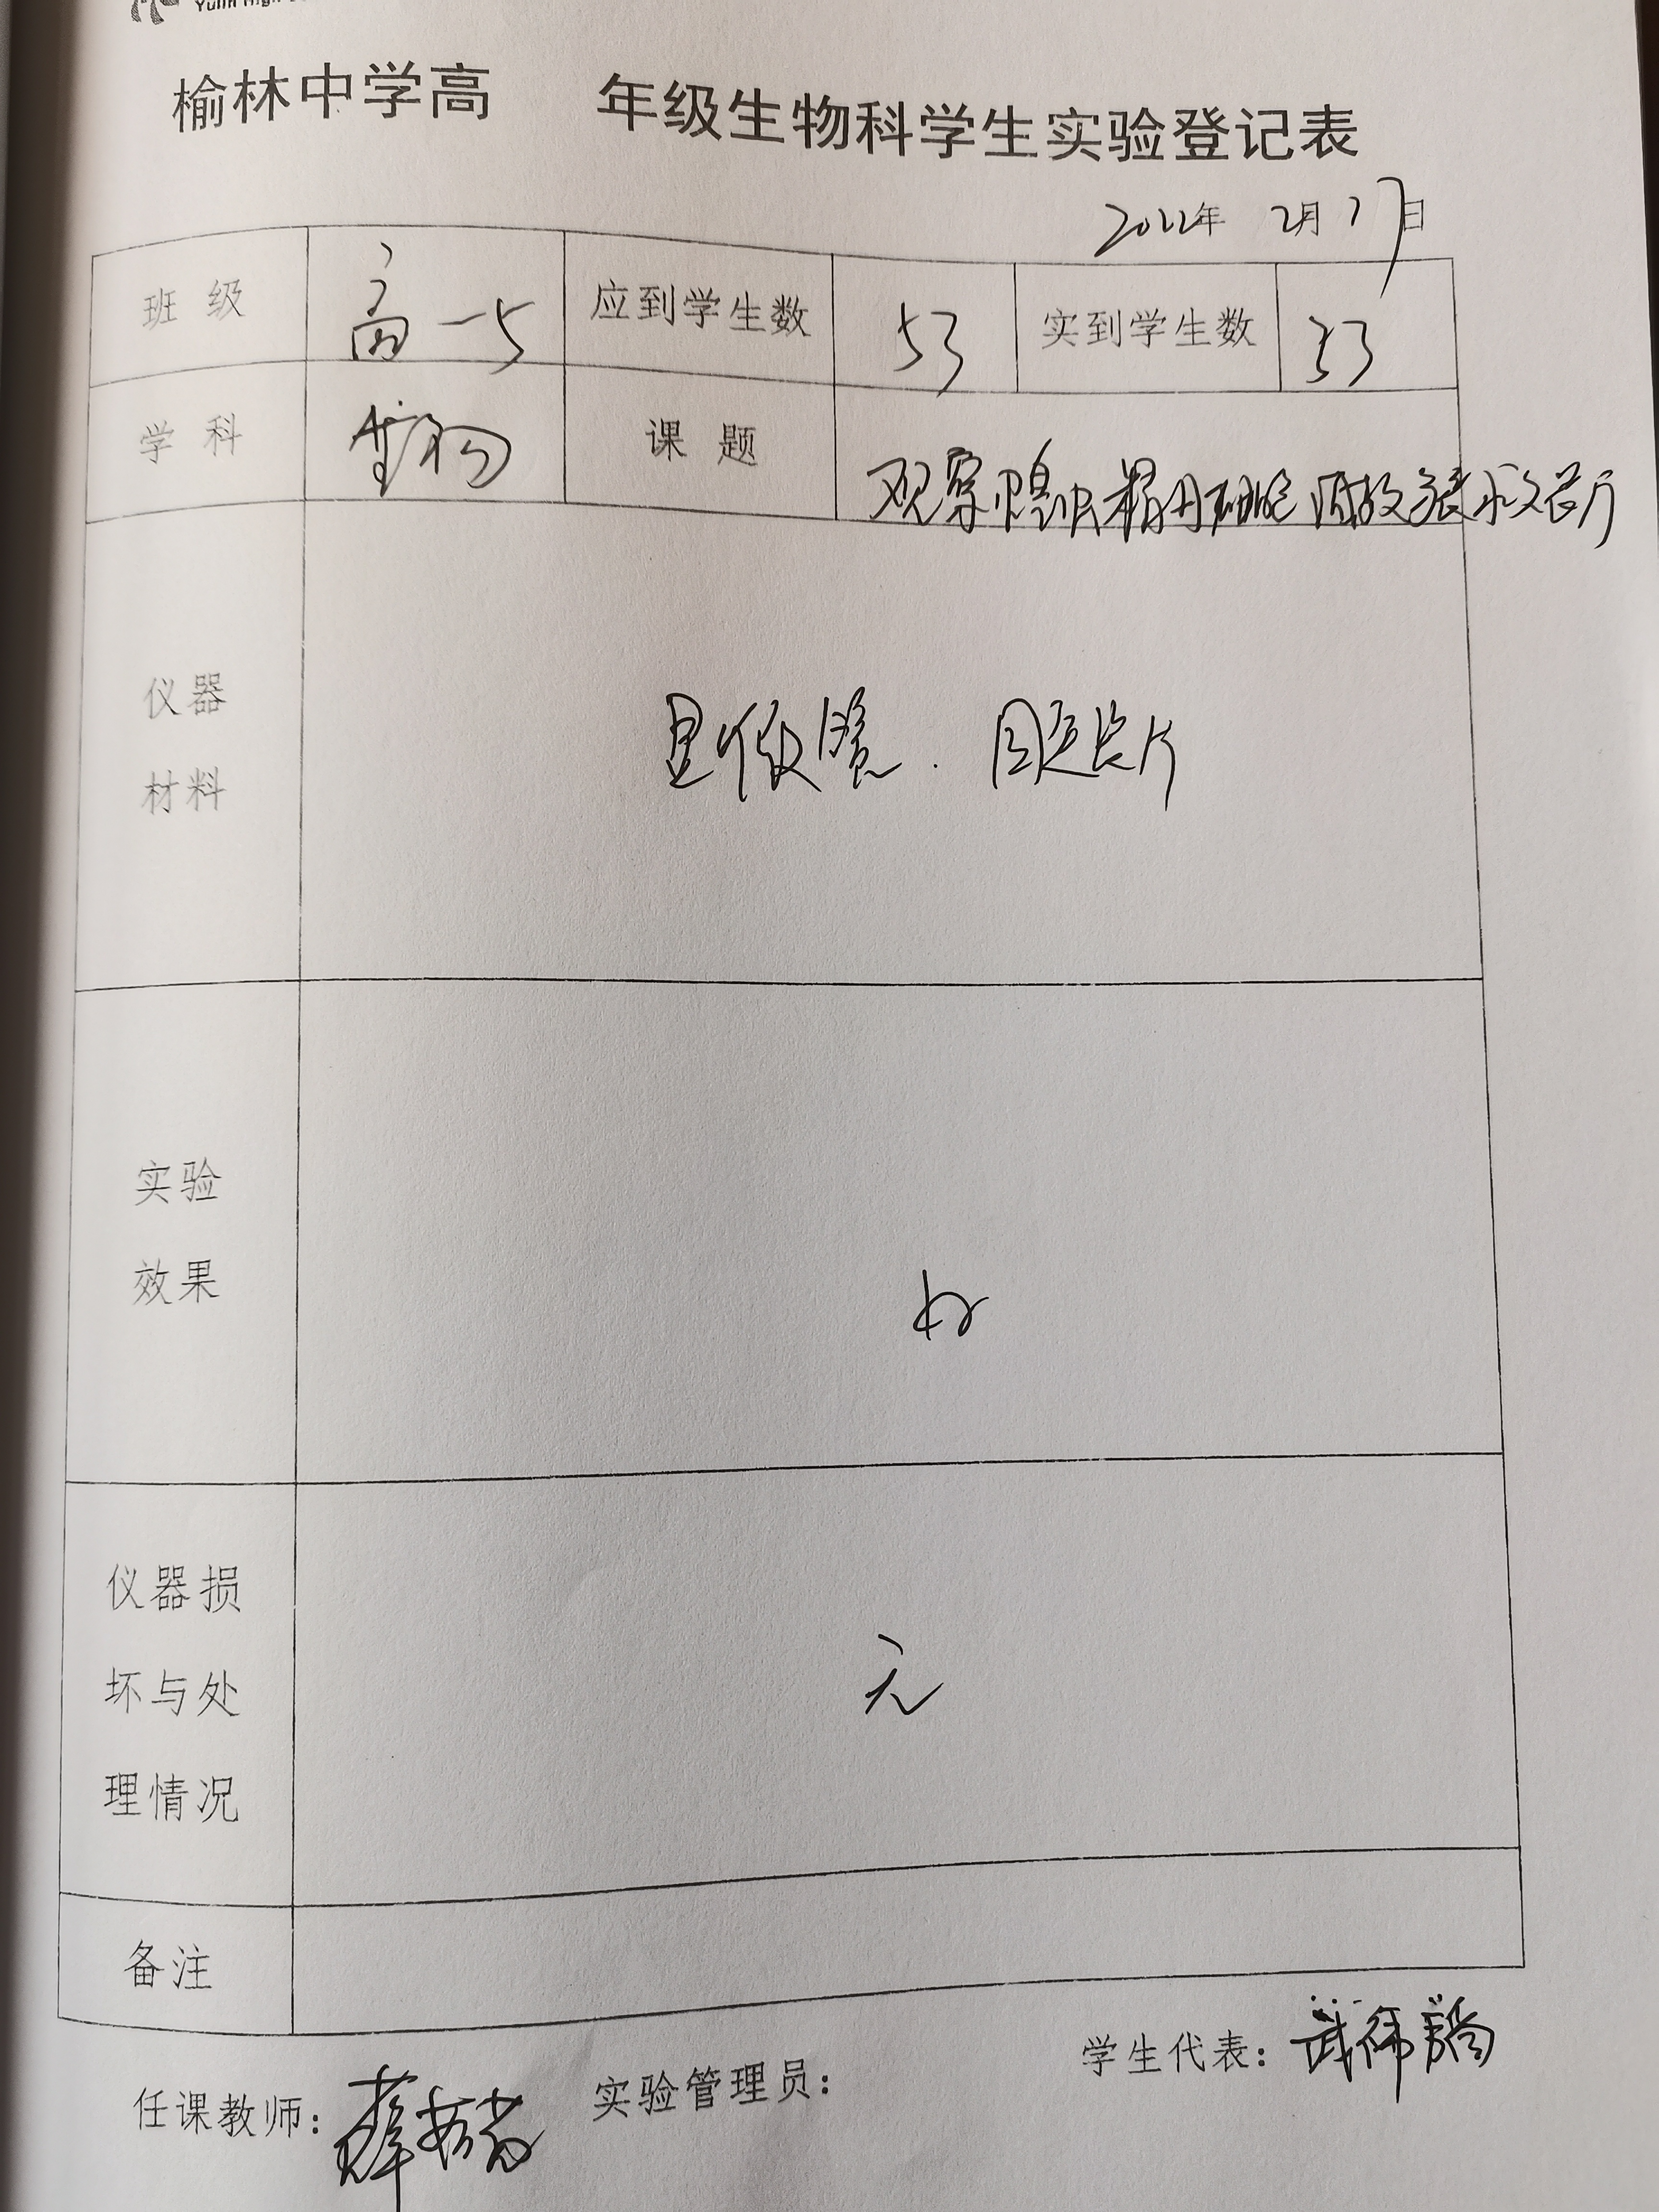 Yulin High
榆林中学高 年级生物科学生实验登记表
2022年 2月17日
班 级 高一5 应到学生数 53 实到学生数 53
学 科 生物 课 题 观察蝗虫精母细胞减数分裂永久装片
仪器
材料
显微镜. 固定装片
实验
效果
好
仪器损
坏与处
理情况
无
备注
学生代表:
任课教师: 薛 实验管理员: